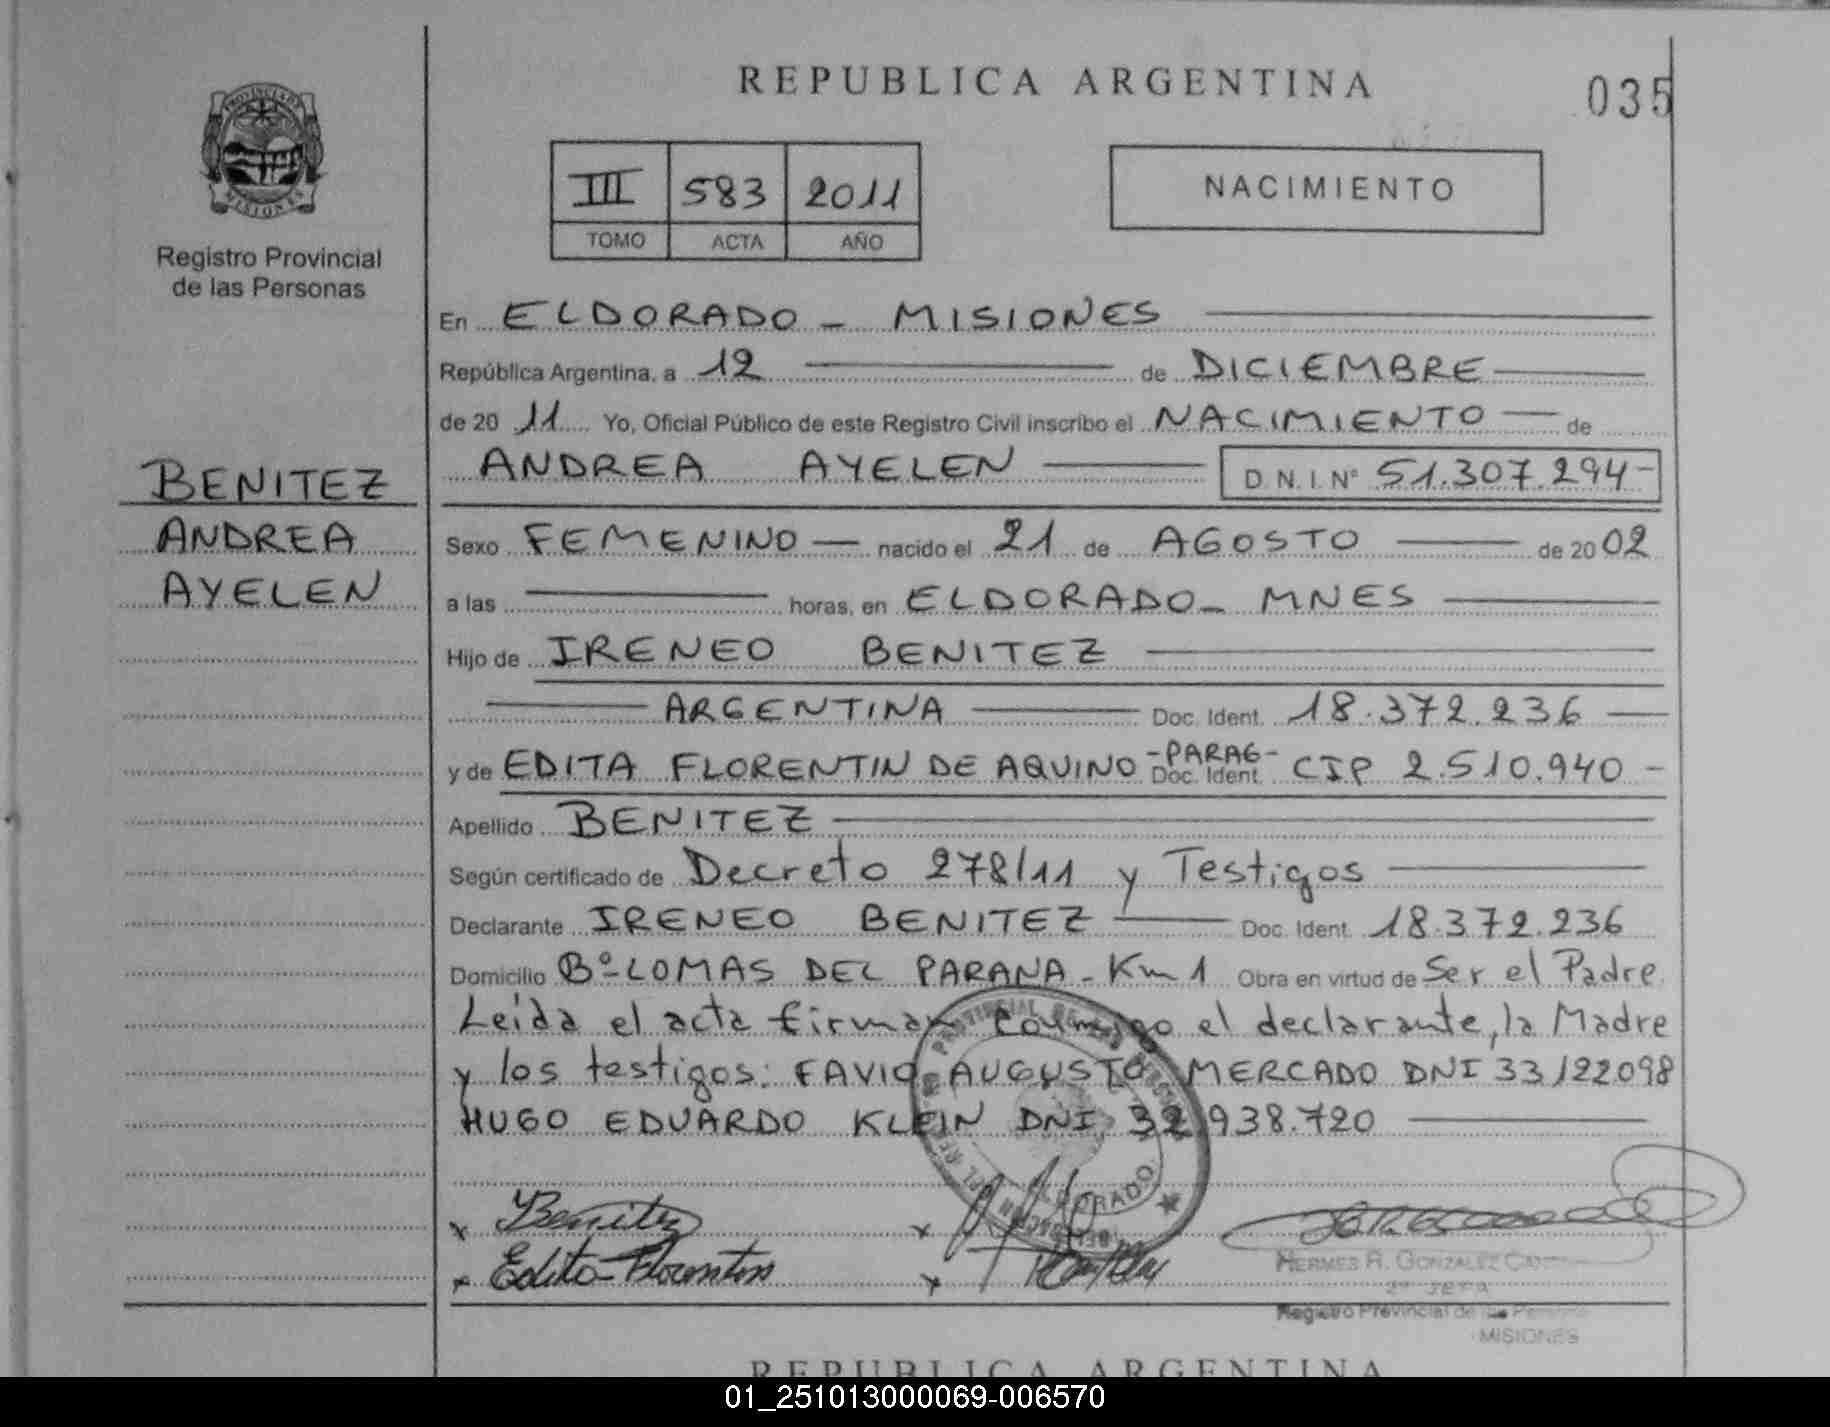 REPUBLICA ARGENTINA
035
PROVINCIA DE
MISIONES
Registro Provincial
de las Personas
III 583 2011
TOMO ACTA AÑO
NACIMIENTO
En ELDORADO - MISIONES
República Argentina, a 12 de DICIEMBRE
de 20 11 Yo, Oficial Público de este Registro Civil inscribo el NACIMIENTO de
ANDREA AYELEN D.N.I. Nº 51.307.294-
BENITEZ
ANDREA
AYELEN
Sexo FEMENINO nacido el 21 de AGOSTO de 20 02
a las horas, en ELDORADO - MNES
Hijo de IRENEO BENITEZ
ARGENTINA Doc. Ident. 18.372.236
y de EDITA FLORENTIN DE AQUINO -PARAG- Doc. Ident. CIP 2.510.940 -
Apellido BENITEZ
Según certificado de Decreto 278/11 y Testigos
Declarante IRENEO BENITEZ Doc. Ident. 18.372.236
Domicilio Bº LOMAS DEL PARANA - Km 1 Obra en virtud de Ser el Padre.
Leida el acta firman conmigo el declarante, la Madre
y los testigos: FAVIO AUGUSTO MERCADO DNI 33122098
HUGO EDUARDO KLEIN DNI 32.938.720
ELDORADO
x Benitez x
x Edita Florentin x
HERMES R. GONZALEZ
2º JEFE
Registro Provincial de las Personas
MISIONES
REPUBLICA ARGENTINA
01_251013000069-006570